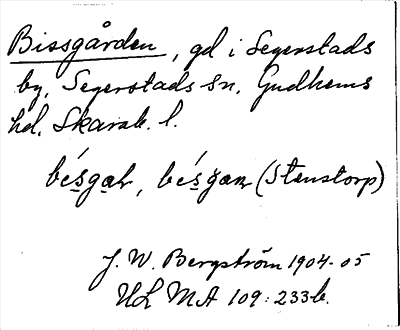 Bissgården, gd i Segerstads
by, Segerstads sn, Gudhems
hd, Skarab. l.
(Stenstorp)
J. W. Bergström 1904-05
ULMA 109:233b.